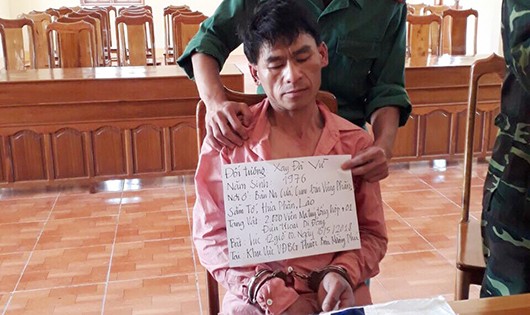 Đối tượng: Xay Đa Vư
Năm Sinh: 1976
Nơi ở: Bản Na Cưa, Cụm bản Vàng Phăn,
Sầm Tớ, Hủa Phăn, Lào
Tang Vật: 2.000 Viên Ma túy tổng hợp + 01
Điện thoại Di động
Bắt lúc 12 giờ 10, ngày 8/5/2018
Tại: Khu Vực VĐBG Thuộc bản